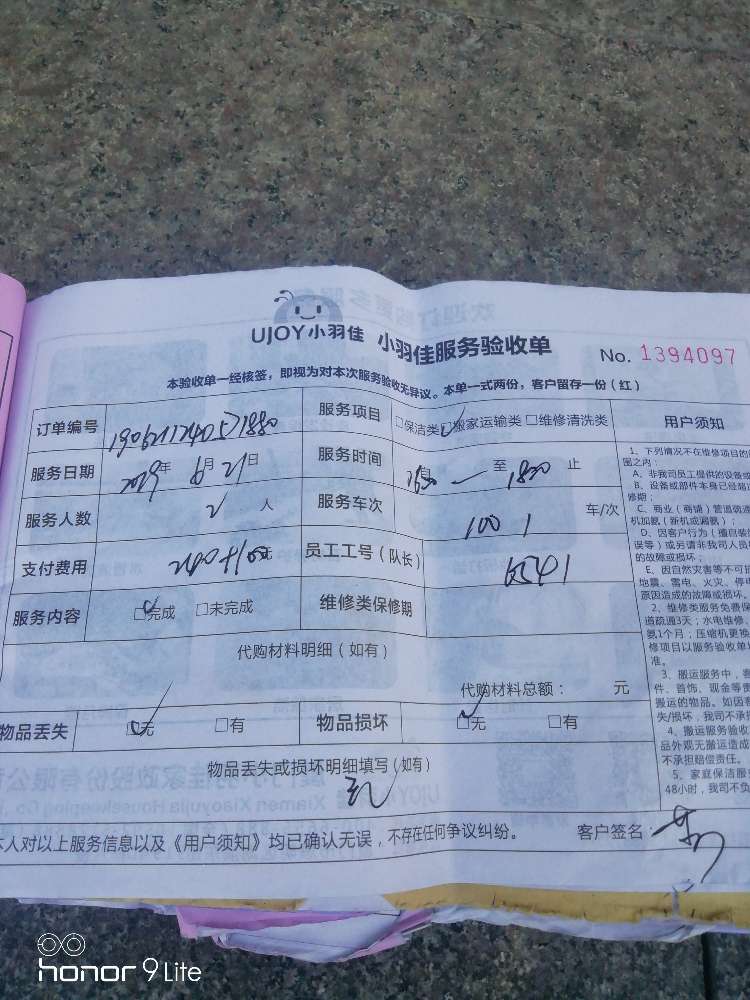 UJOY小羽佳 小羽佳服务验收单 No. 1394097
本验收单一经核签，即视为对本次服务验收无异议。本单一式两份，客户留存一份（红）
订单编号 服务项目 □保洁类 □搬家运输类 □维修清洗类 用户须知
服务日期 2019年 6月 21日 服务时间 至 1830 止
服务人数 2 人 服务车次 1001 车/次
支付费用 元 员工工号（队长）
服务内容 □完成 □未完成 维修类保修期
代购材料明细（如有）
代购材料总额： 元
物品丢失 □无 □有 物品损坏 □无 □有
物品丢失或损坏明细填写（如有）
无
本人对以上服务信息以及《用户须知》均已确认无误，不存在任何争议纠纷。 客户签名：
1、下列情况不在维修项目的
围之内：
A、非我司员工提供的设备或
B、设备或部件本身已经超过
修期；
C、商业（商铺）管道疏通
机加氨（新机或漏氨）；
D、因客户行为（擅自装
误等）或另请非我司人员
的故障或损坏；
E、因自然灾害等不可抗
地震、雷电、火灾、停
原因造成的故障或损坏。
2、维修类服务免费保
道疏通3天；水电维修、
氨1个月；压缩机更换
修项目以服务验收单
准。
3、搬运服务中，
件、首饰、现金等贵
搬运的物品。如因
失/损坏，我司不承
4、搬运服务验收
品外观无搬运造成
不承担赔偿责任。
5、家庭保洁服
48小时，我司不负
honor 9 Lite